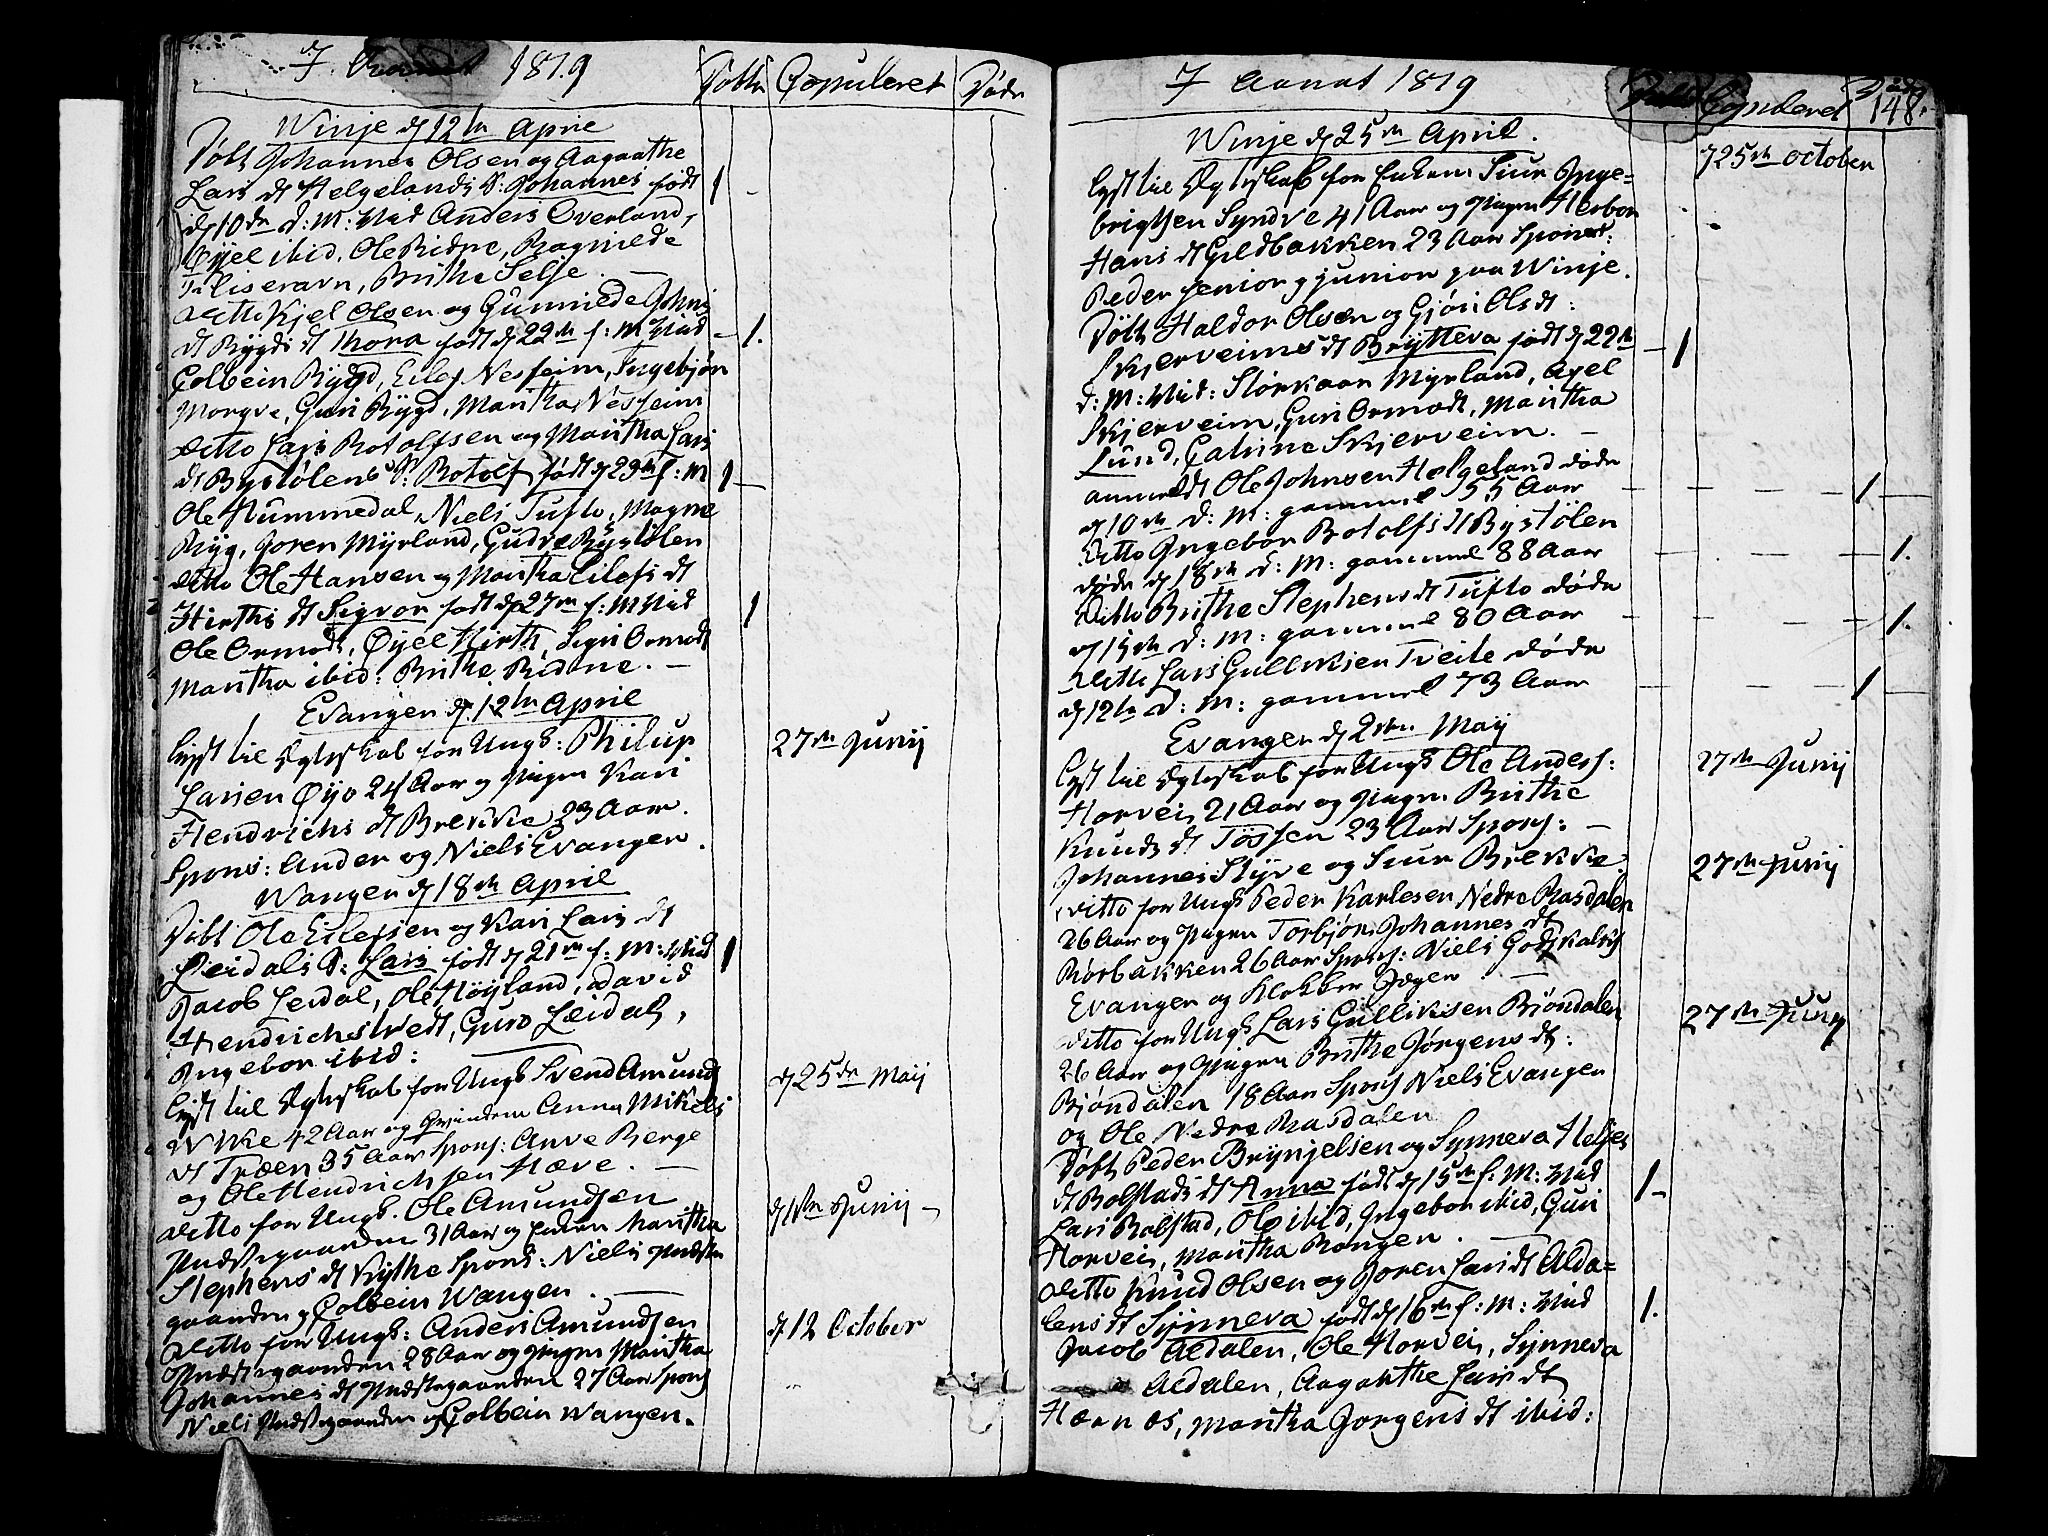 7. Aarnat 1819
Døbte
Copuleret
Døde
Winje d 12te April
Døbt Johannes Olsen og Aagaathe
Lars dt Helgelands S: Johannes født
d 10de d: M: Vid Anders Overland,
Øyel ibid, Ole Ridne, Ragnilde
Fliseravn, Brithe Selje.
ditto Kjel Olsen og Gunnilde Johns
dt Rygds dt Thora født d 22de f: M Vid
Colbein Rygd, Eilef Nesheim, Ingebjør
Morgve, Guri Rygd, Maritha Nesheim
ditto Lars Rotolfsen og Maritha Lars
dt Bystølens S: Botolf født d 23de f: M
Ole Hummedal, Niels Tufto, Magne
Ryg, Joren Myrland, Gudve Bystølen
ditto Ole Hansen og Maritha Eilefs dt
Hirths dt Sigvor født d 27de f: M Vid
Ole Ormodt, Øyel Hirth, Sigri Ormodt
Maritha ibid: Brithe Ridne.
Evanger d 12te April
Lyst til Egteskab for Ungk: Philup
27de Junij
Larsen Øyo 24 Aar og Pigen Kari
Hendrichs dt Brekke 23 Aar.
Spons: Anders og Niels Evanger.
Wangen d 18de April
Døbt Ole Eilefsen og Kari Lars dt
Leidals S: Lars født d 21de f: M: Vid
Jacob Leidal, Ole Høyland, David
Hendrichstvedt, Guro Leidal,
Ingebor ibid:
Lyst til Egteskab for Ungk Svend Amunds
d 25de Maij
Wike 42 Aar og Qvinden Anna Mikels
dt Træen 35 Aar Spons: Anve Berge
og Ole Hendrichsen Hæve.
ditto for Ungk. Ole Amundsen
d 1ste Junij
Prædstegaarden 31 Aar og Enken Maritha
Stephens dt Kythe Spons: Niels Prædste
gaarden og Colbein Wangen.
ditto for Ungk: Anders Amundsen
d 12 October
Prædstegaarden 28 Aar og Pigen Maritha
Johannes dt Prædstegaarden 27 Aar Spons
Niels Prædstegaarden og Colbein Wangen.
7 Aarnat 1819
Døbte
Copuleret
148.
Winje d 25de April.
Lyst til Egteskab for Enkem. Siur Inge=
d 25de October
brigtsen Syndve 41 Aar og Pigen Herbor
Hans dt Gildbakken 23 Aar Sponss:
Peder senior og junior paa Winje.
Døbt Haldor Olsen og Gjøri Ols dt:
Skjerveims dt Brytteva født d 22de
d: M: Vid: Størkaar Myrland, Axel
Skjerveim, Guri Ormodt, Maritha
Lund, Catrine Skjerveim.
anmeldt Ole Johnsen Helgeland døde
d 10de d: M: gammel 55 Aar
ditto Ingebor Botolfs dt Bystølen
døde d 18de d: M: gammel 88 Aar
ditto Brithe Stephens dt Tufto døde
d 15de d: M: gammel 80 Aar
ditto Lars Gulliksen Tveite døde
d 12te d: M: gammel 73 Aar
Evanger d 2den Maij
Lyst til Egteskab for Ungk Ole Anders:
27de Junij
Horveis 21 Aar og Pigen Brithe
Knuds dt Tössen 23 Aar Spons:
Johannes Styve og Siur Brekke
ditto for Ungk Peder Karlesen Nedre Rasdalen
27de Junij
26 Aar og Pigen Torbjør Johannes dt
Rørbakken 26 Aar Spons: Niels Godskalks
Evanger og Klokker Jæger.
ditto for Ungk Lars Gulliksen Bjøndalen
27de Junij
26 Aar og Pigen Brithe Jørgens dt:
Bjøndalen 18 Aar Spons Niels Evanger
og Ole Nedre Rasdalen
Døbt Peder Brynjelsen og Synneva Heljes
dt Bolstads dt Anna født d 15de f: M: Vid
Lars Bolstad, Ole ibid, Ingebor ibid, Guri
Horveis, Maritha Rongen.
ditto Knud Olsen og Joren Lars dt Alda=
lens dt Synneva født d 16de f: M: Vid
Jacob Aldalen, Ole Horveis, Synneva
Aldalen, Aagathe Lars dt
Hærnæs, Maritha Jorgens dt ibid: